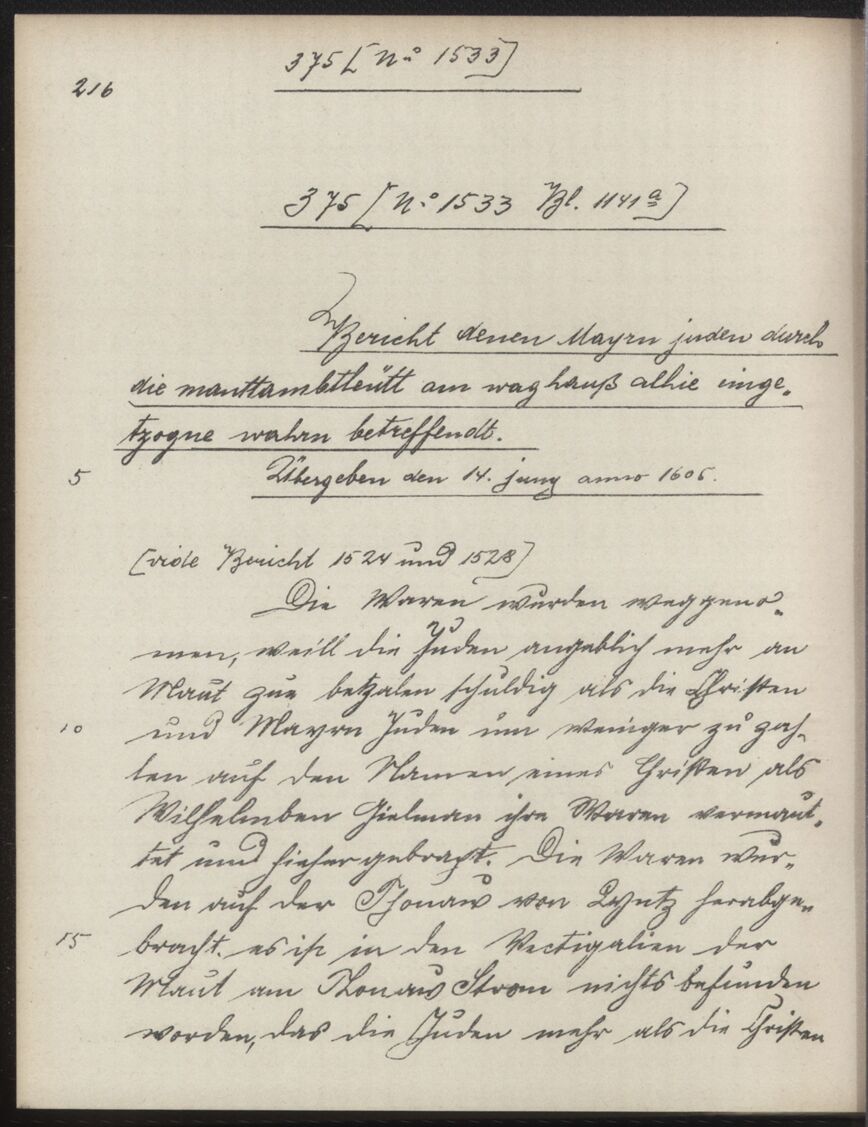 375 [No 1533]
216
375 [No 1533 Bl. 1141a]
Bericht denen Mayrn juden durch
die mauttambtleütt am waghauß alhie einge-
tzogne wahrn betreffendt.
5 Übergeben den 14. juny anno 1605.
[vide Bericht 1524 und 1528]
Die Waren wurden weggeno-
men, weill die Juden angeblich mehr an
Maut zue betzalen schuldig als die Christen
10 und Mayrn Juden um weniger zu zah-
len auf den Namen eines Christen als
Wilhelmben Gielman ihre Waren vermaut-
tet und hieher gebracht. Die Waren wur-
den auf der Thonaw von Lyntz herabge-
15 bracht. es ist in den Vectigalien der
Maut am Thonaw Strom nichts befunden
worden, das die Juden mehr als die Christen